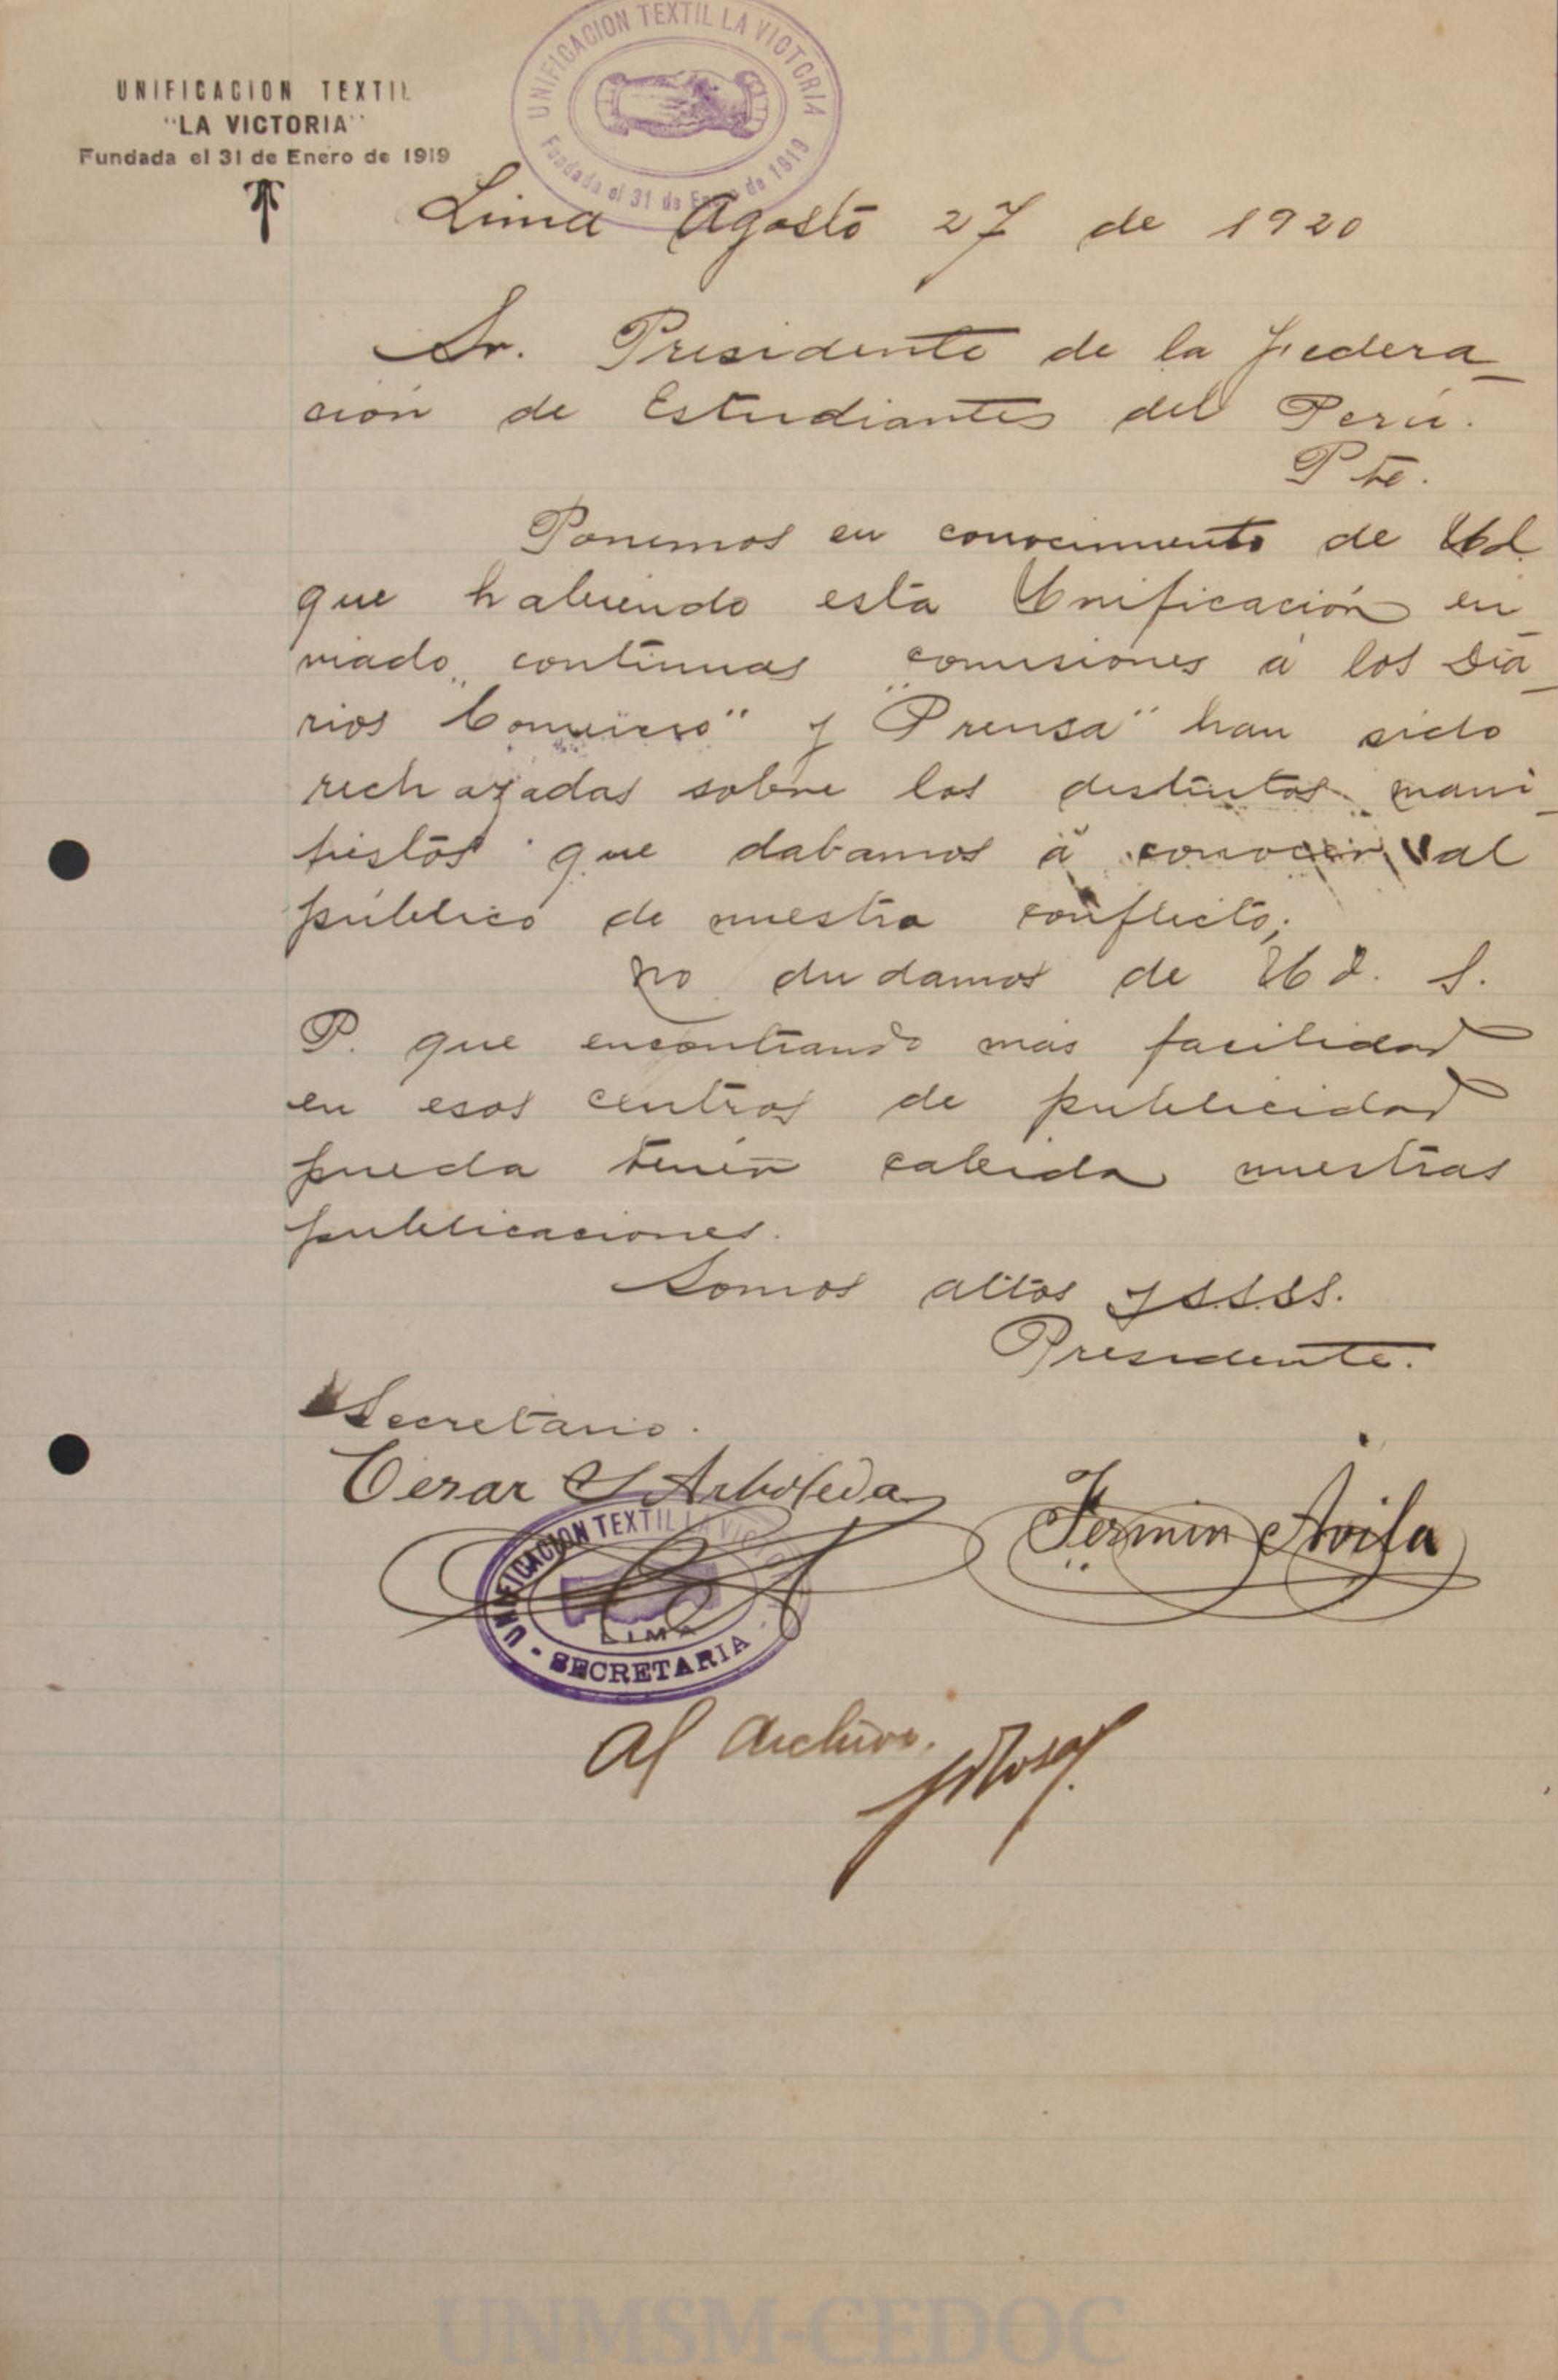 UNIFICACION TEXTIL
"LA VICTORIA"
Fundada el 31 de Enero de 1919
UNIFICACION TEXTIL LA VICTORIA
Fundada el 31 de Enero de 1919
Lima Agosto 27 de 1920
Sr. Presidente de la Federa-
ción de Estudiantes del Perú.
Pte.
Ponemos en conocimiento de Ud.
que habiendo esta Unificación en-
viado continuas comisiones á los Dia-
rios "Comercio" y "Prensa" han sido
rechazadas sobre los distintos mani-
fiestos que dabamos á conocer al
público de nuestro conflicto;
no dudamos de Ud. S.
P. que encontrando más facilidad
en esos centros de publicidad
pueda tener cabida nuestras
publicaciones.
Somos attos y S.S.S.S.
Presidente.
Secretario.
Cesar S Arboleda
Fermin Avila
UNIFICACION TEXTIL LA VICTORIA
LIMA
- SECRETARIA -
Al Archivo.
UNMSM-CEDOC